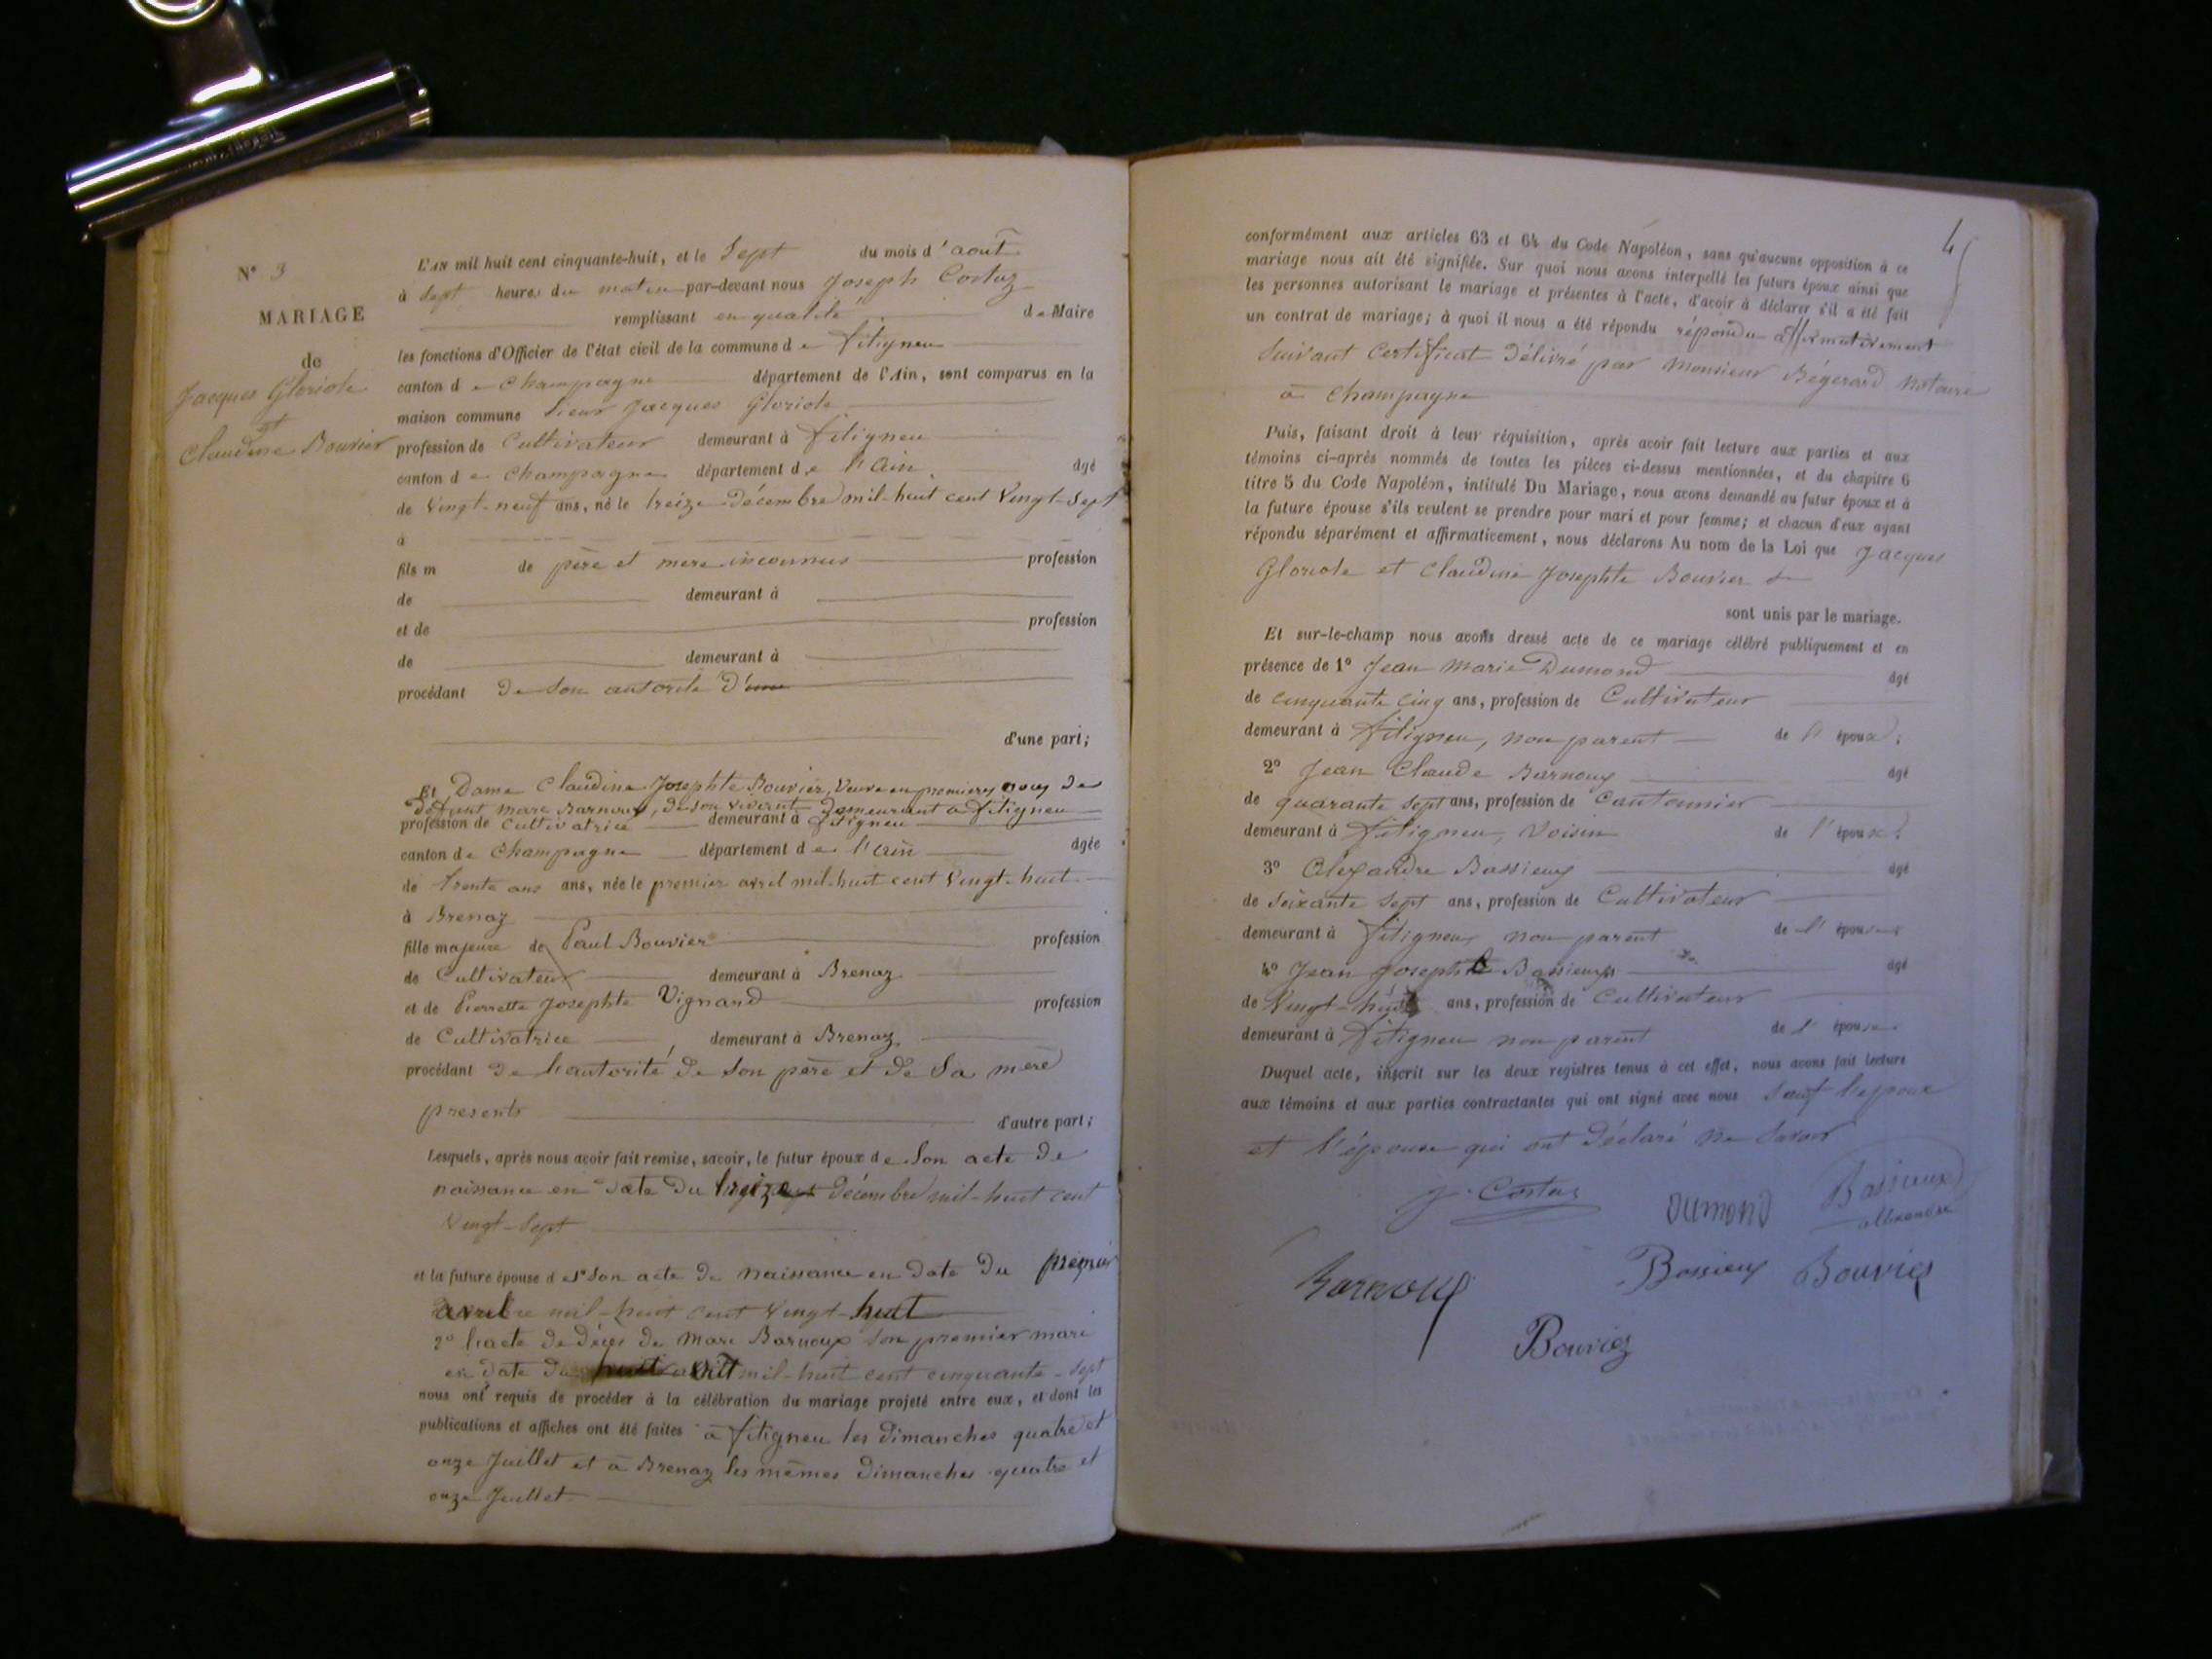 N° 3
MARIAGE
de
Jacques Gloriote
et
Claudine Bouvier
L'AN mil huit cent cinquante-huit, et le Sept du mois d'août
à Sept heures du matin par-devant nous Joseph Costaz
remplissant en qualité de Maire
les fonctions d'Officier de l'état civil de la commune de fitigneu
canton de Champagne département de l'Ain, sont comparus en la
maison commune Sieur Jacques Gloriote
profession de Cultivateur demeurant à fitigneu
canton de Champagne département de l'Ain âgé
de Vingt-neuf ans, né le treize décembre mil-huit cent Vingt-Sept
à
fils m de père et mere inconnus profession
de demeurant à
et de profession
de demeurant à
procédant de son autorité d'une
d'une part;
Et Dame Claudine Josephte Bouvier, Veuve en premiers de
défunt Marc Barnoux, de son vivant demeurant à fitigneu
profession de cultivatrice demeurant à fitigneu
canton de Champagne département de l'ain âgée
de trente ans ans, née le premier avril mil-huit cent Vingt-huit
à Brenaz
fille majeure de Paul Bouvier profession
de Cultivateur demeurant à Brenaz
et de Pierrette Josephte Vignard profession
de Cultivatrice demeurant à Brenaz
procédant de l'autorité de son père et de sa mère
presents d'autre part;
Lesquels, après nous avoir fait remise, savoir, le futur époux de son acte de
naissance en date du treize décembre mil-huit cent
Vingt-Sept
et la future épouse de 1° son acte de naissance en date du premier
avril mil-huit cent Vingt-huit
2° l'acte de décès de Marc Barnoux son premier mari
en date du août mil-huit cent cinquante-sept
nous ont requis de procéder à la célébration du mariage projeté entre eux, et dont les
publications et affiches ont été faites à fitigneu les dimanches quatre et
onze Juillet et à Brenaz les mêmes dimanches quatre et
onze Juillet
4
conformément aux articles 63 et 64 du Code Napoléon, sans qu'aucune opposition à ce
mariage nous ait été signifiée. Sur quoi nous avons interpellé les futurs époux ainsi que
les personnes autorisant le mariage et présentes à l'acte, d'avoir à déclarer s'il a été fait
un contrat de mariage; à quoi il nous a été répondu répondu affirmativement
suivant certificat délivré par Monsieur Bégerard Notaire
à Champagne
Puis, faisant droit à leur réquisition, après avoir fait lecture aux parties et aux
témoins ci-après nommés de toutes les pièces ci-dessus mentionnées, et du chapitre 6
titre 5 du Code Napoléon, intitulé Du Mariage, nous avons demandé au futur époux et à
la future épouse s'ils veulent se prendre pour mari et pour femme; et chacun d'eux ayant
répondu séparément et affirmativement, nous déclarons Au nom de la Loi que Jacques
Gloriote et Claudine Josephte Bouvier
sont unis par le mariage.
Et sur-le-champ nous avons dressé acte de ce mariage célébré publiquement et en
présence de 1° Jean Marie Dumond âgé
de cinquante cinq ans, profession de Cultivateur
demeurant à fitigneu, non parent de l'époux;
2° Jean Claude Barnoux âgé
de quarante sept ans, profession de Cantonnier
demeurant à fitigneu, Voisin de l'époux;
3° Alexandre Bassieux âgé
de soixante sept ans, profession de Cultivateur
demeurant à fitigneu non parent de l'épouse
4° Jean Joseph Bassieux âgé
de Vingt-huit ans, profession de Cultivateur
demeurant à fitigneu non parent de l'épouse
Duquel acte, inscrit sur les deux registres tenus à cet effet, nous avons fait lecture
aux témoins et aux parties contractantes qui ont signé avec nous Sauf l'epoux
et l'épouse qui ont déclaré ne Savoir
J. Costaz
DUMOND
Bassieux
alexandre
Barnoux
Bassieux
Bouvier
Bouvier